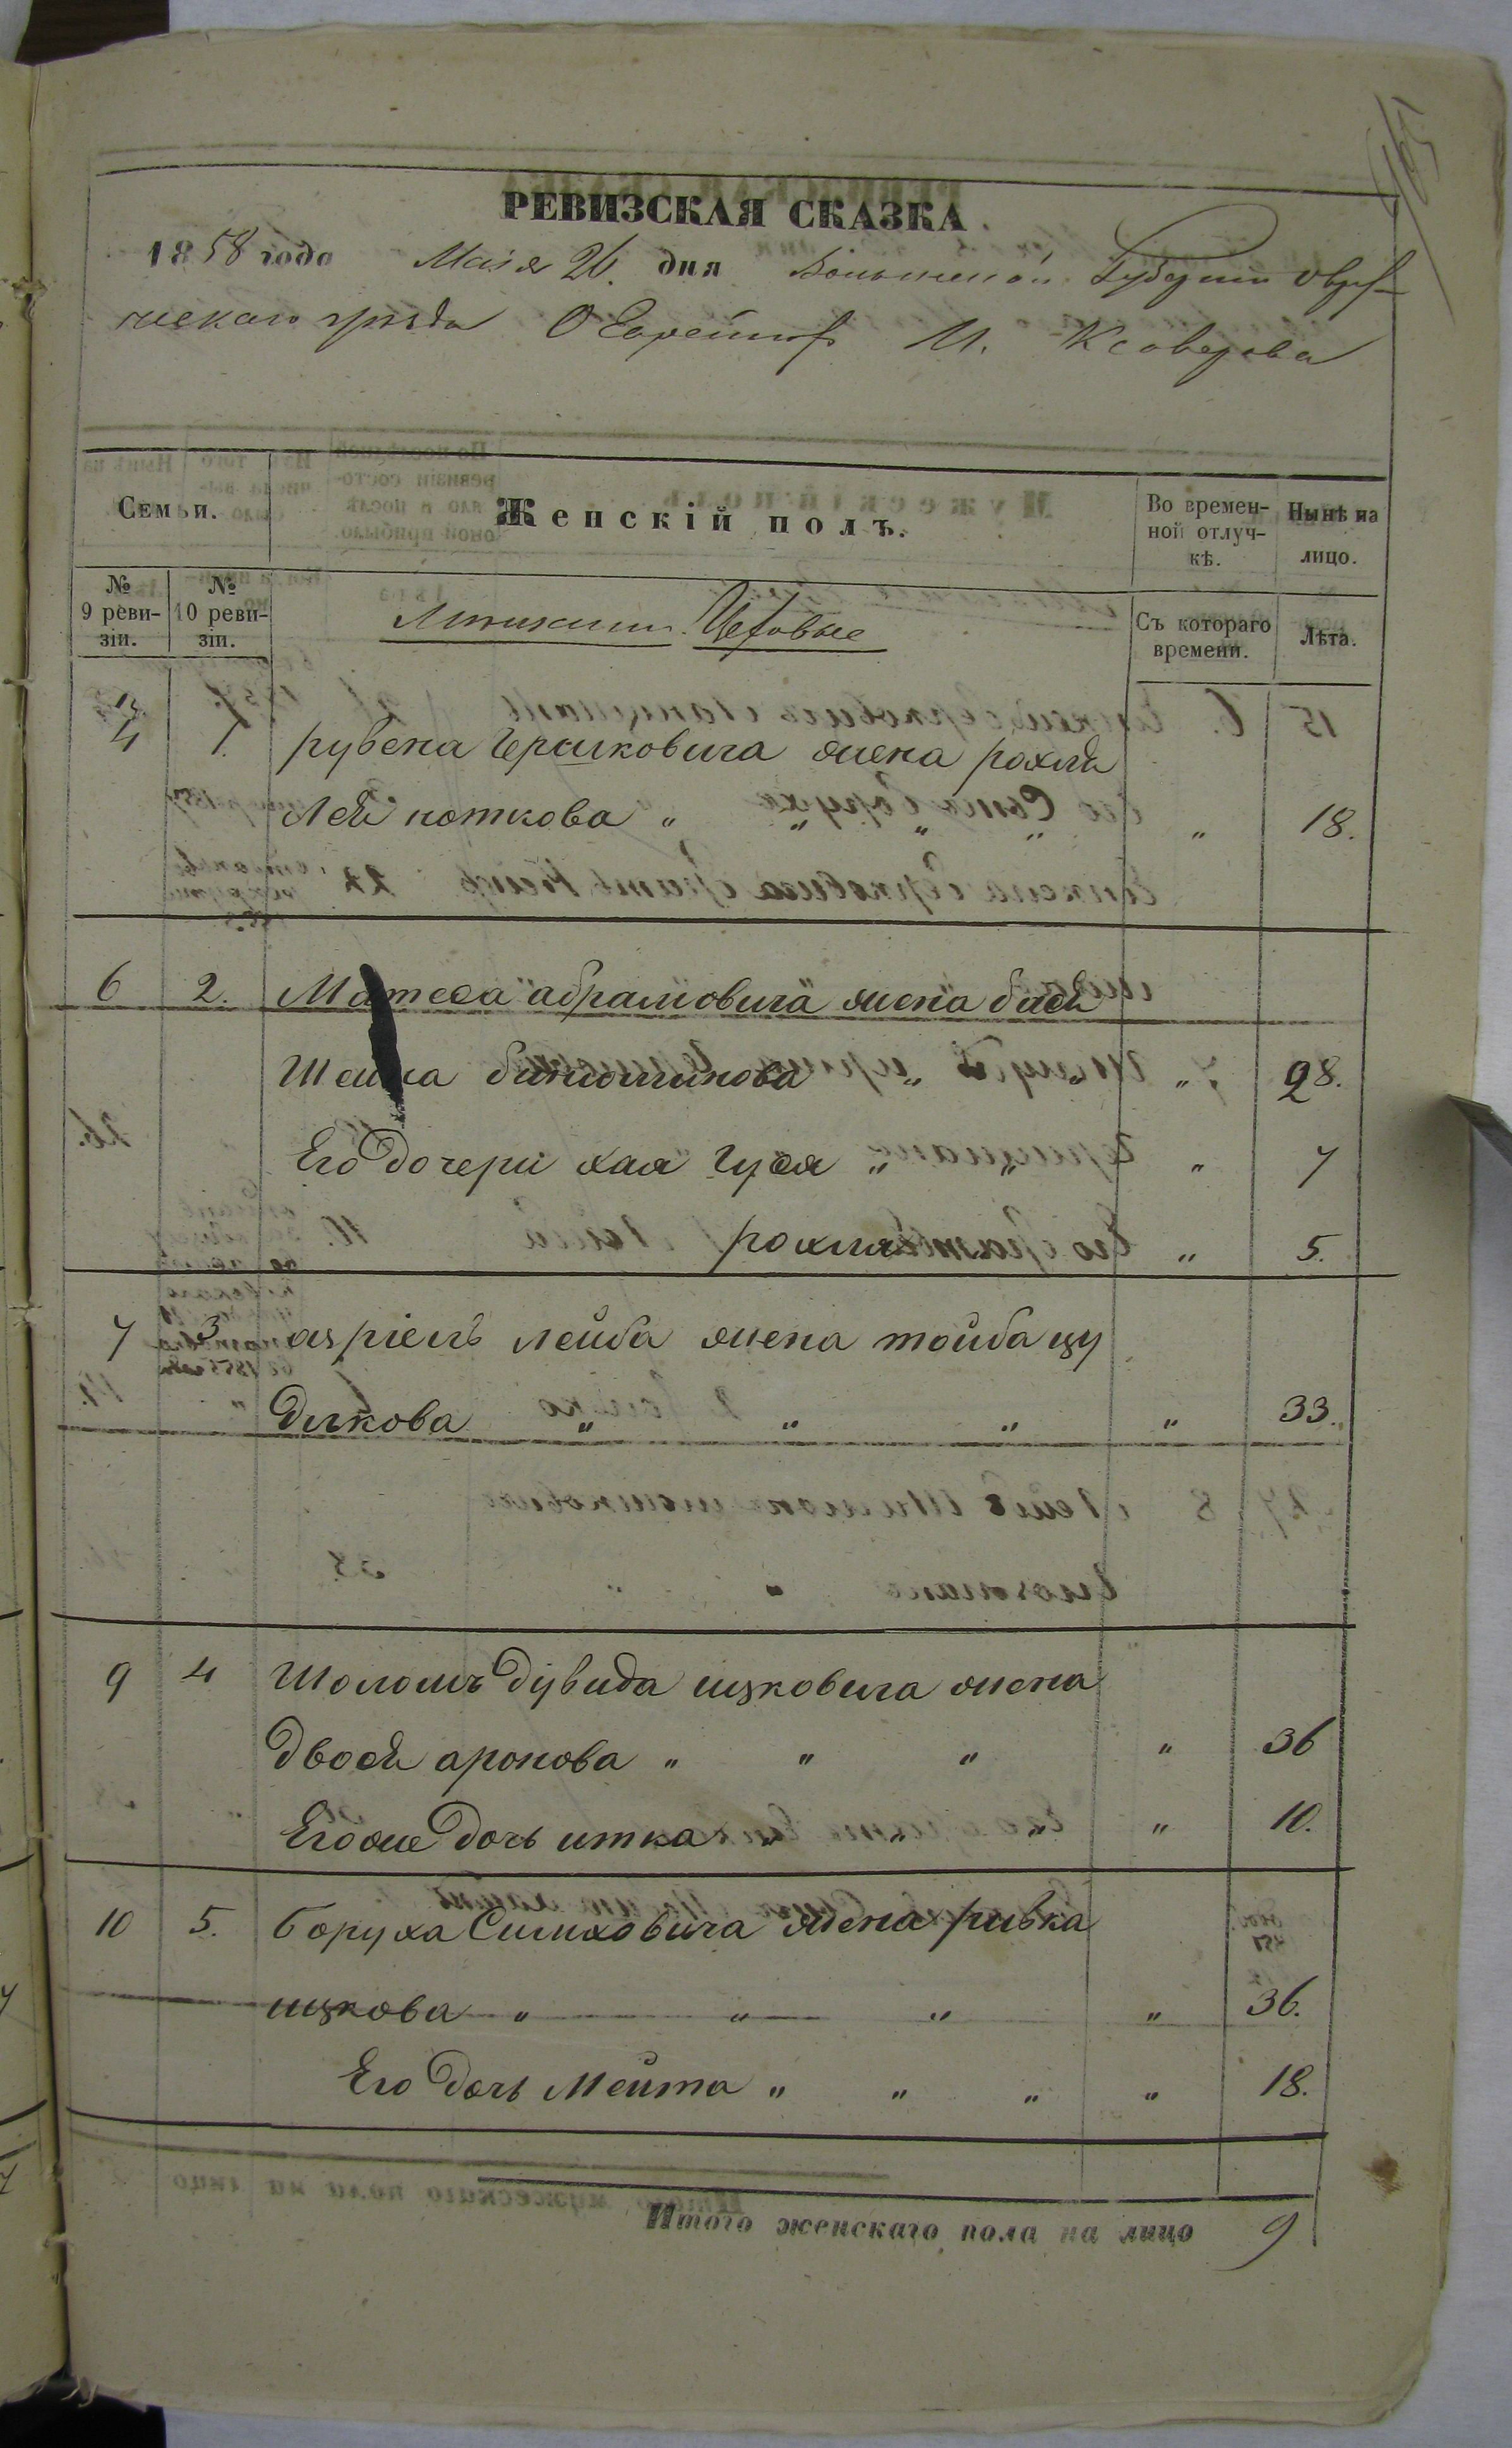 РЕВИЗСКАЯ СКАЗКА.
1858 года Маія 26. дня Волынской Губерніи Овру-
ческаго уезда О Евреяхъ М. Ксаверова
Семьи.
Женскій полъ.
Во времен-
ной отлуч-
кѣ.
Нынѣ на
лицо.
№
9 реви-
зіи.
№
10 реви-
зіи.
Цеховые
Съ котораго
времени.
Лѣта.
4 1. рубена Гершковича жена рохля
Лея ноткова " " " " 18.
6 2. Матеса абрамовича жена бася
Шейна биніоминова " " " 28.
Его дочери хая Гуся " " " 7
рохля " 5.
7 3 азріелъ лейба жена тойба цу
дикова " " " " 33.
9 4 Шоломъ дувида ицковича жена
двося аронова " " " " 36
Егоже дочь итка " " " " 10.
10 5. боруха Симховича жена ривка
ицкова " " " " 36.
Его дочь Мейта " " " " 18.
Итого женскаго пола на лицо 9